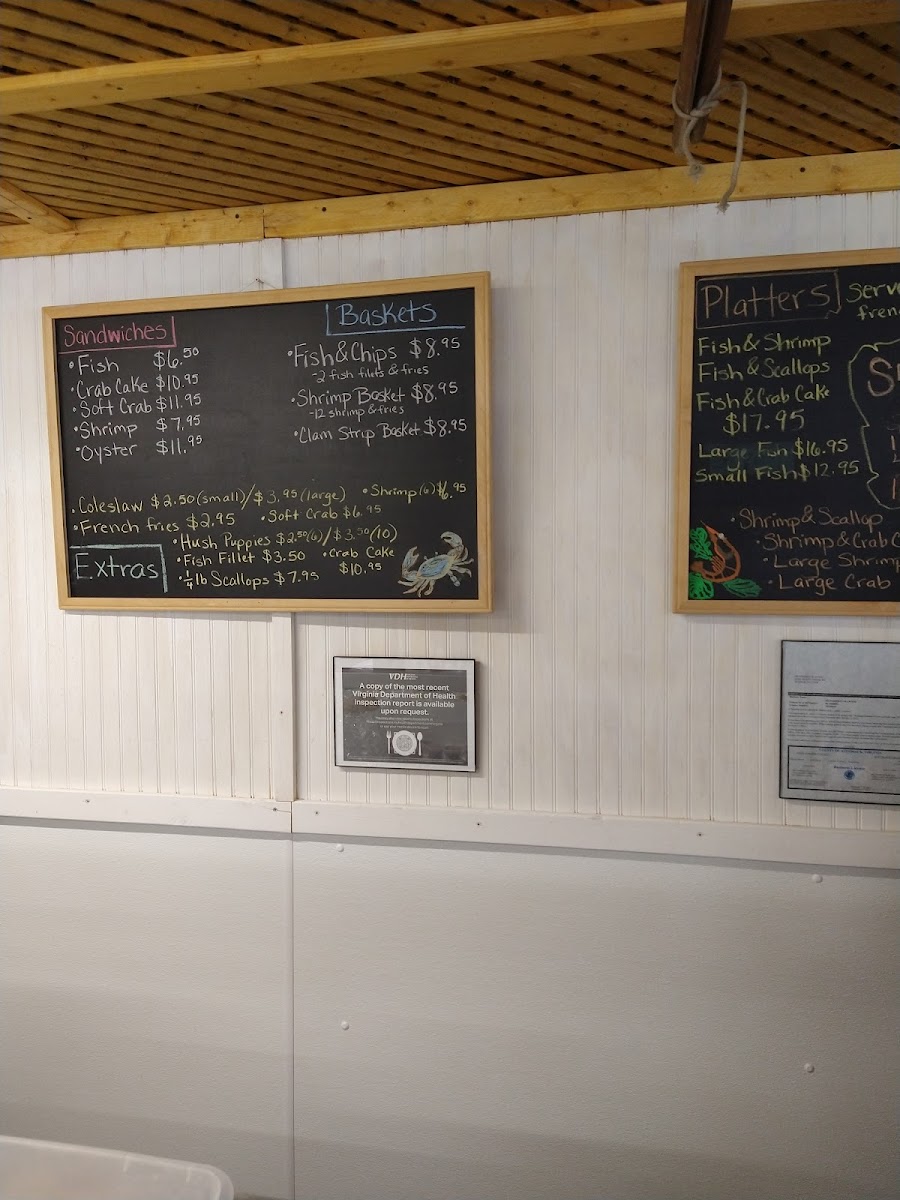 Sandwiches
• Fish $6.50
• Crab Cake $10.95
• Soft Crab $11.95
• Shrimp $7.95
• Oyster $11.95
Baskets
• Fish & Chips $8.95
-2 fish filets & fries
• Shrimp Basket $8.95
-12 shrimp & fries
• Clam Strip Basket $8.95
• Coleslaw $2.50 (small)/$3.95 (large) • Shrimp (6) $6.95
• French fries $2.95 • Soft Crab $6.95
• Hush Puppies $2.50(6)/$3.50(10)
Extras
• Fish Fillet $3.50 • Crab Cake
$10.95
• 1/4 lb Scallops $7.95
Platters
Serve
fren
Fish & Shrimp
Fish & Scallops
Fish & Crab Cake
$17.95
Large Fish $16.95
Small Fish $12.95
• Shrimp & Scallop
• Shrimp & Crab C
• Large Shrimp
• Large Crab
VDH
A copy of the most recent
Virginia Department of Health
inspection report is available
upon request.